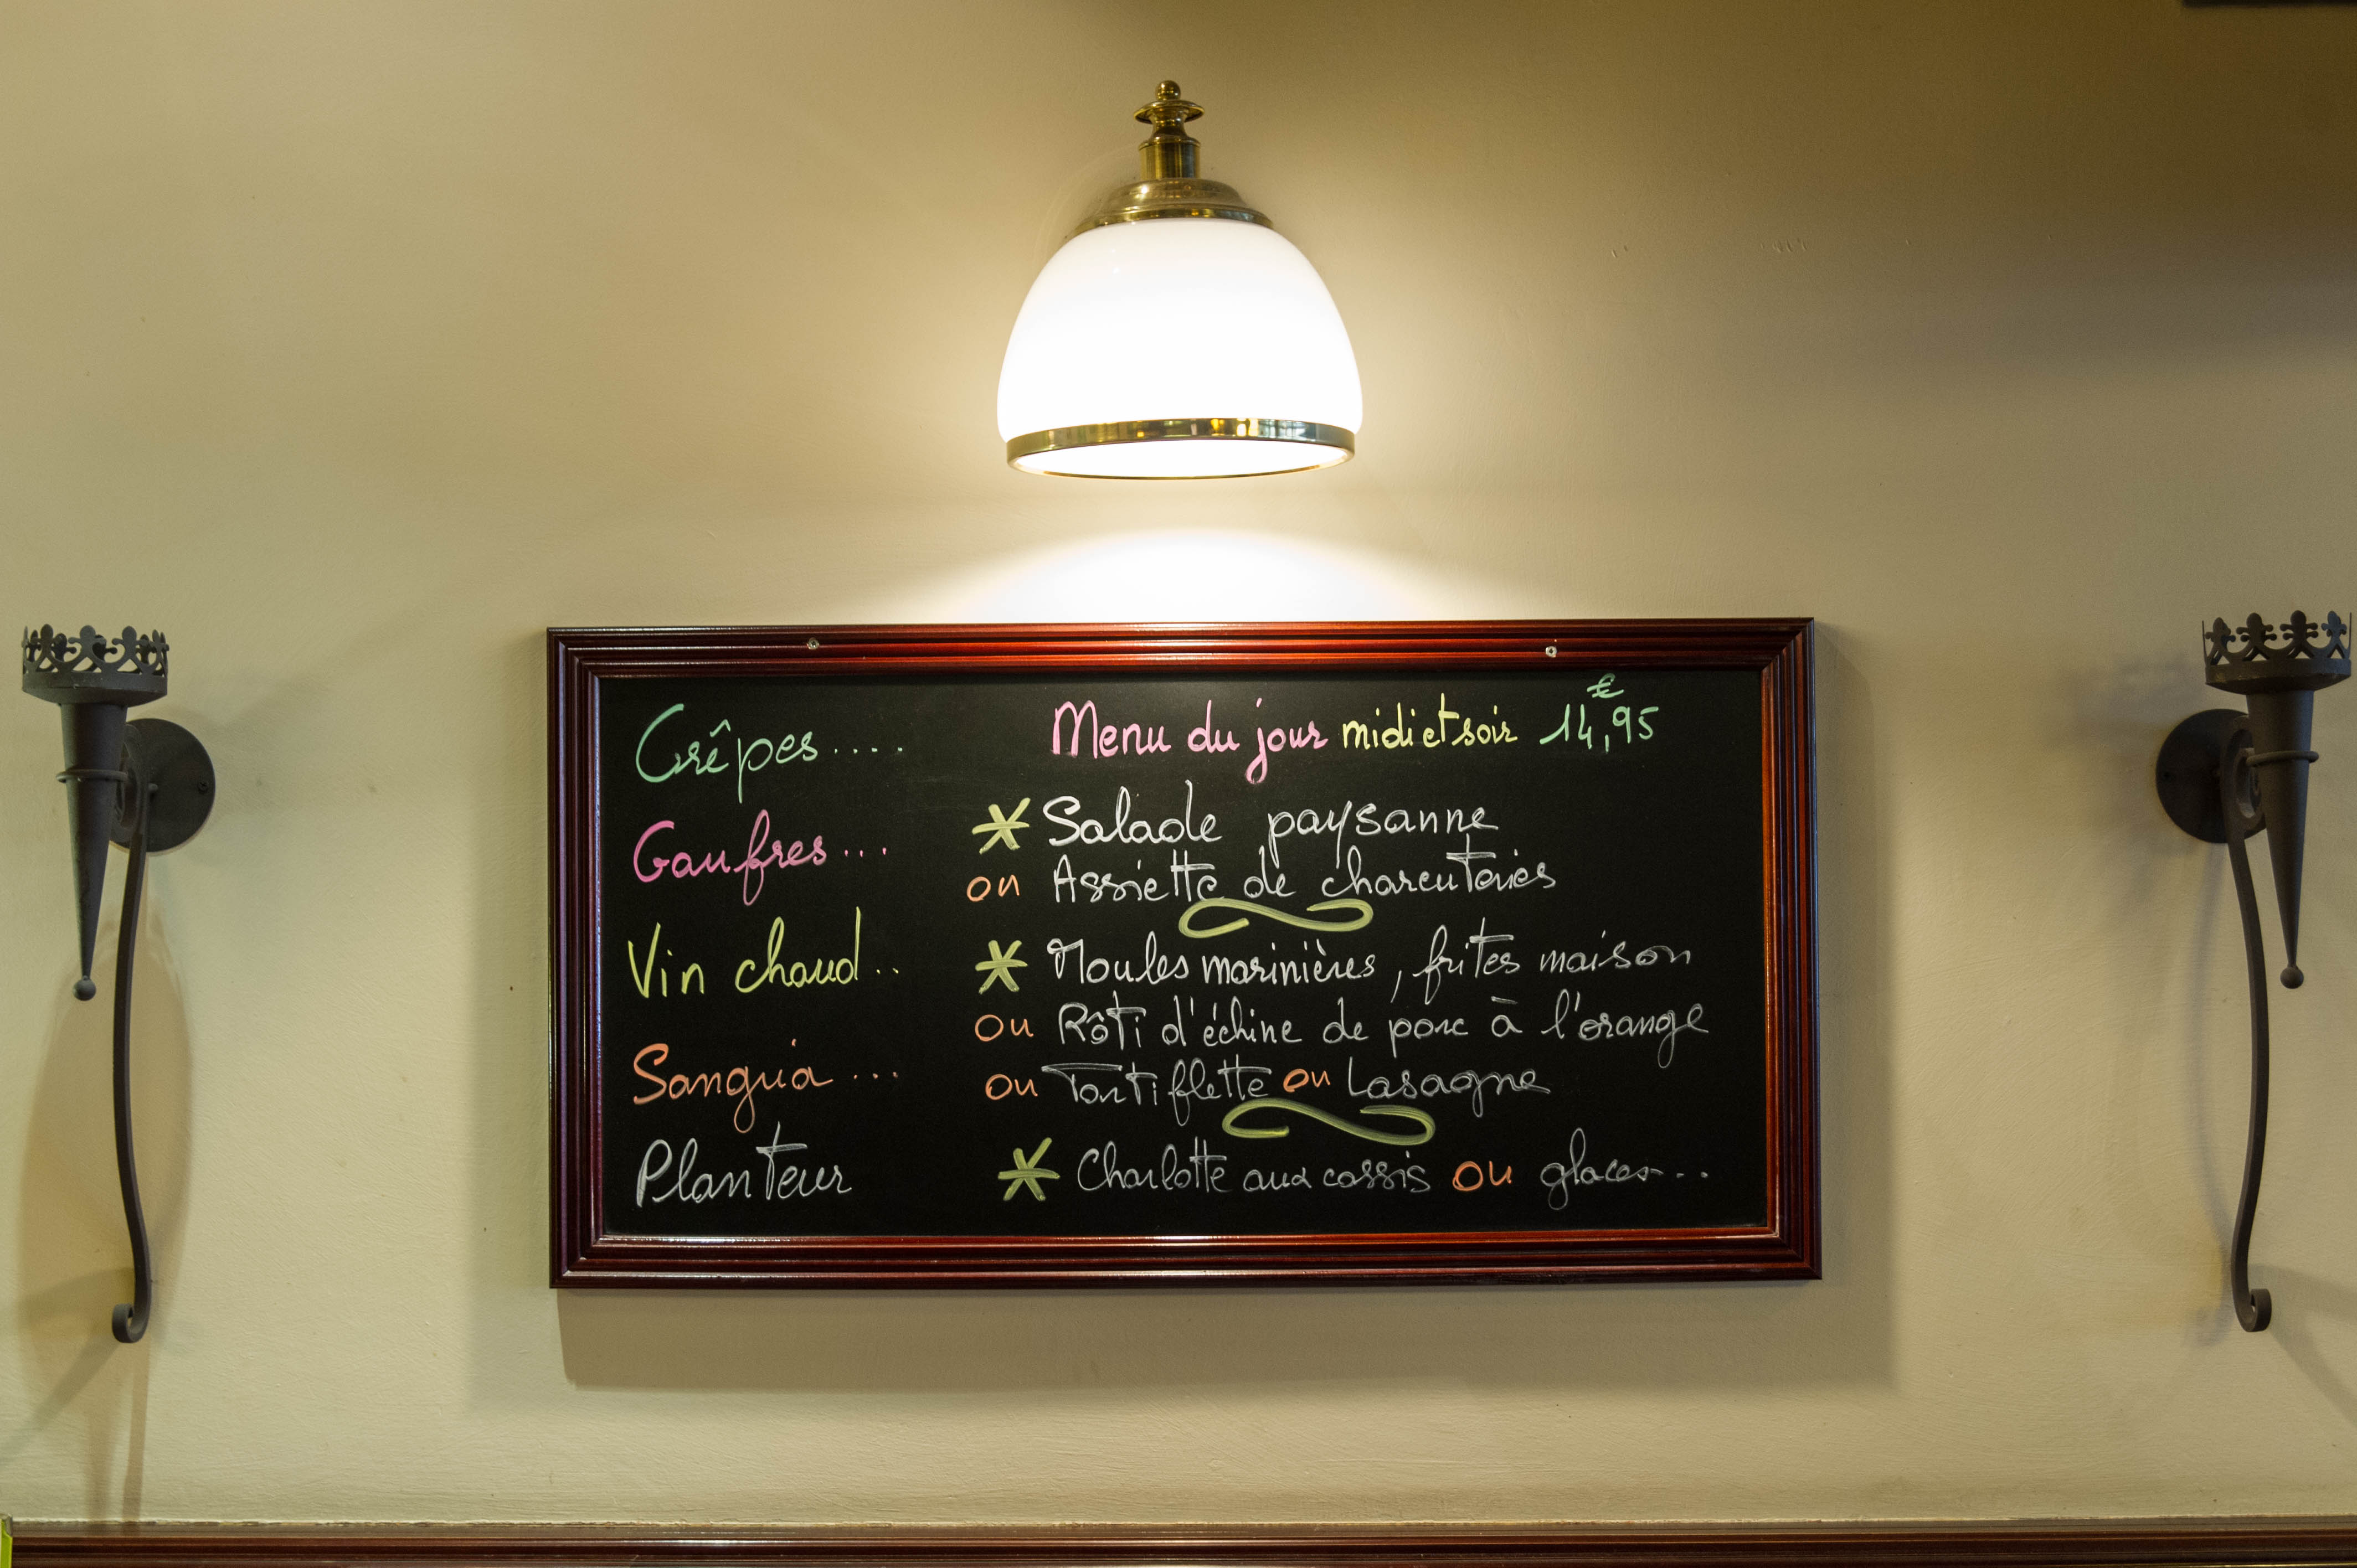 Crêpes ....
Gaufres ...
Vin chaud ..
Sangria ...
Planteur
Menu du jour midi et soir 14,95 €
* Salade paysanne
ou Assiette de charcuteries
* Moules marinières, frites maison
ou Rôti d'échine de porc à l'orange
ou Tartiflette ou Lasagne
* Charlotte aux cassis ou glaces...